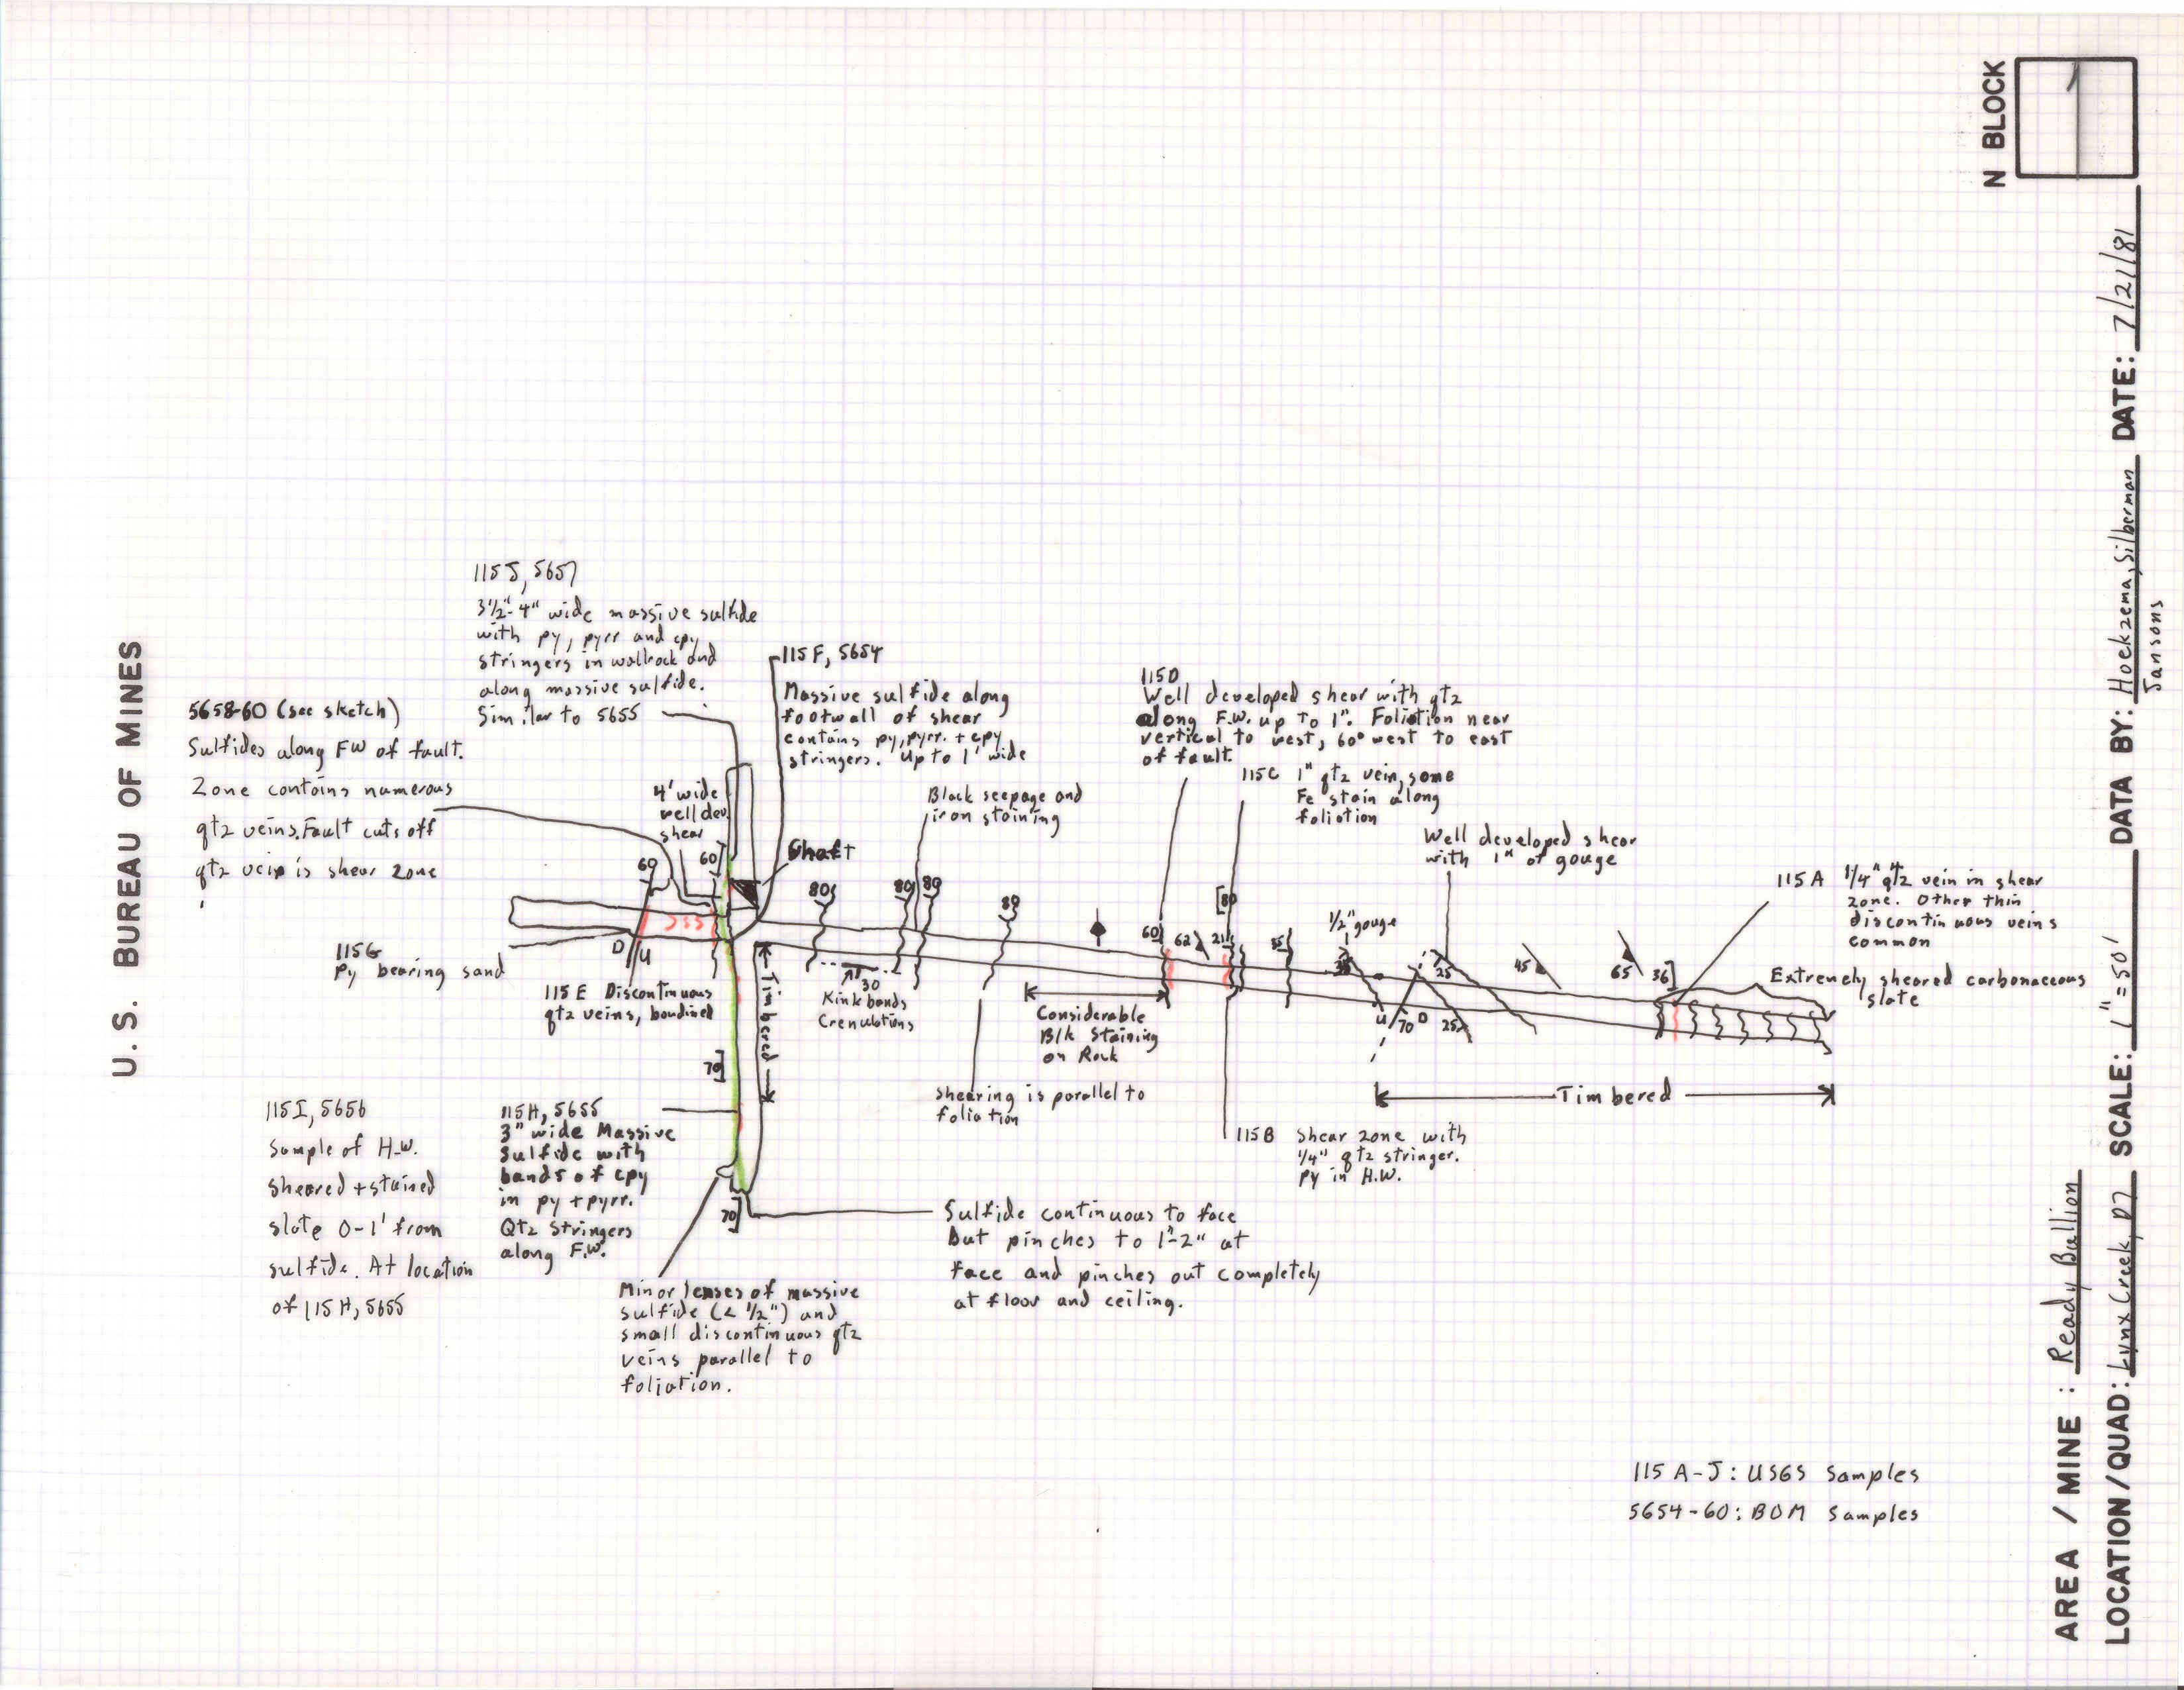 U.S. BUREAU OF MINES
N BLOCK
AREA / MINE : Ready Bullion
LOCATION/QUAD: Lynx Creek, D7 SCALE: 1"=50' DATA BY: Hoekzema, Silberman DATE: 7/21/81
Jansons
115J, 5657
3½"-4" wide massive sulfide
with py, pyrr and cpy
stringers in wallrock and
along massive sulfide.
Similar to 5655
5658-60 (see sketch)
Sulfides along FW of fault.
Zone contains numerous
qtz veins. Fault cuts off
qtz vein is shear zone
4' wide
well dev.
shear
115F, 5654
Massive sulfide along
footwall of shear
contains py, pyrr. + cpy
stringers. Up to 1' wide
Shaft
Black seepage and
iron staining
115D
Well developed shear with qtz
along F.W. up to 1". Foliation near
vertical to west, 60° west to east
of fault.
115C 1" qtz vein, some
Fe stain along
foliation
Well developed shear
with 1" of gouge
115A 1/4" qtz vein in shear
zone. Other thin
discontinuous veins
common
Extremely sheared carbonaceous
slate
60
60
80
80
80
80
60
62
21
80
55
1/2" gouge
25
45
65
36
D
U
115G
Py bearing sand
115E Discontinuous
qtz veins, boudined
Timbered
30
Kink bands
Crenulations
Considerable
Blk Staining
on Rock
U
70
D
25
70
shearing is parallel to
foliation
Timbered
115B Shear zone with
1/4" qtz stringer.
py in H.W.
115I, 5656
Sample of H.W.
sheared + stained
slate 0-1' from
sulfide. At location
of 115H, 5655
115H, 5655
3" wide Massive
Sulfide with
bands of cpy
in py + pyrr.
Qtz Stringers
along F.W.
70
Sulfide continuous to face
but pinches to 1"-2" at
face and pinches out completely
at floor and ceiling.
Minor lenses of massive
sulfide (< ½") and
small discontinuous qtz
veins parallel to
foliation.
115 A-J: USGS Samples
5654-60: BOM Samples